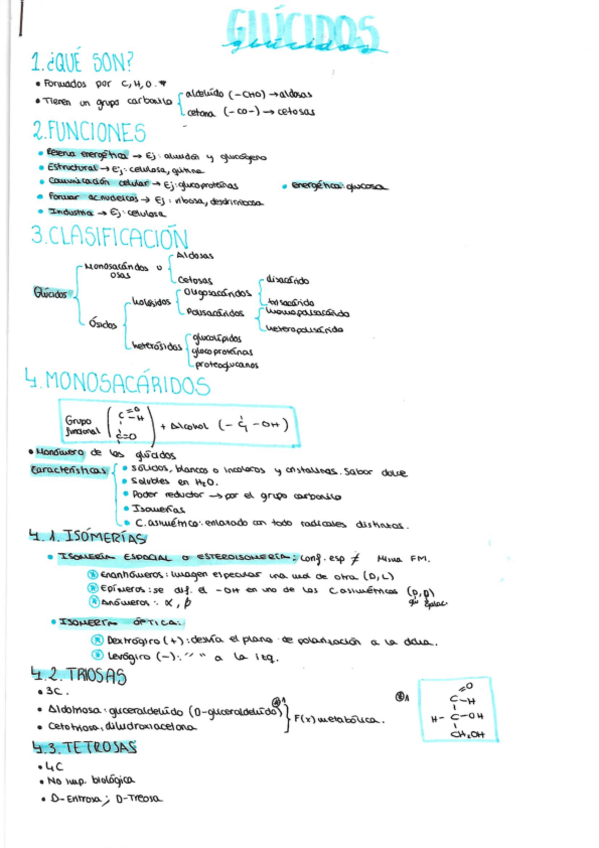 GLÚCIDOS
glúcidos
1.¿QUÉ SON?
• Formados por C, H, O.
• Tienen un grupo carbonilo
aldehído (-CHO) → aldosas
cetona (-CO-) → cetosas
2.FUNCIONES
• Reserva energética → Ej: almidón y glucógeno
• Estructural → Ej: celulosa, quitina
• Comunicación celular → Ej: glucoproteínas
• energética: glucosa
• Formar ac.nucleicos → Ej: ribosa, desoxirribosa
• Industria → Ej: celulosa
3.CLASIFICACIÓN
Glúcidos
Monosacáridos u osas
Aldosas
Cetosas
Ósidos
holósidos
Oligosacáridos
disacárido
trisacárido
Polisacáridos
homopolisacárido
heteropolisacárido
heterósidos
glucolípidos
glucoproteínas
proteoglucanos
4.MONOSACÁRIDOS
Grupo funcional
C=O
-H
C=O
+ Alcohol (-C-OH)
• Monómero de los glúcidos
Características
• Sólidos, blancos o incoloros y cristalinos. Sabor dulce
• Solubles en H₂O.
• Poder reductor → por el grupo carbonilo
• Isomerías
• C. asimétrico: enlazado con todo radicales distintos.
4.1. ISOMERÍAS
• ISOMERÍA ESPACIAL O ESTEROISOMERÍA: Conf. esp ≠ Misma FM.
Enantiómeros: Imagen especular una mol de otra (D, L)
Epímeros: se dif. el -OH en uno de los C asimétricos (D, D)
Anómeros: α, β
• ISOMERÍA ÓPTICA:
Dextrógiro (+): desvía el plano de polarización a la dcha.
Levógiro (-): " " a la izq.
4.2. TRIOSAS
• 3C.
• Aldotriosa: gliceraldehído (D-gliceraldehído)
• Cetotriosa: dihidroxiacetona
F(x) metabólica.
=O
C-H
H-C-OH
CH₂OH
4.3. TETROSAS
• 4C
• No imp. biológica
• D-Eritrosa; D-Treosa